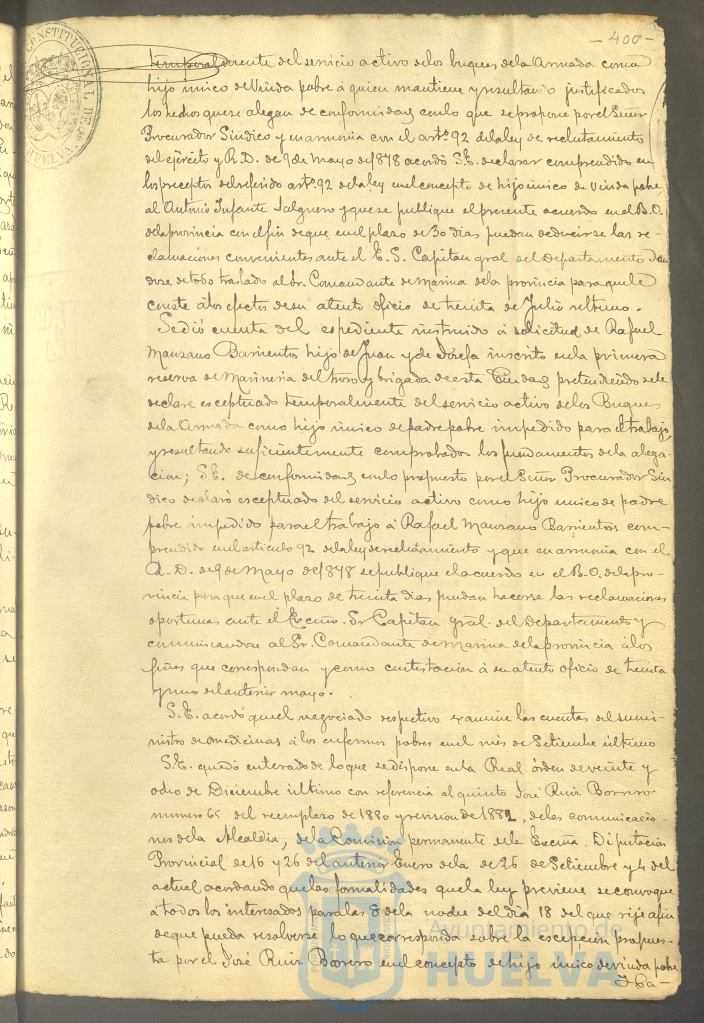 - 400 -
CONSTITUCIONAL DE
HUELVA
temporalmente del servicio activo de los buques de la Armada como
hijo único de Viuda pobre á quien mantiene y resultando justificados
los hechos que se alegan de conformidad con lo que se propone por el Señor
Procurador Síndico y en armonia con el artº 92 de la ley de reclutamiento
del ejército y R. D. de 9 de Mayo de 1878 acordó S. E. declarar comprendido en
los preceptos del referido artº 92 de la ley en el concepto de hijo único de Viuda pobre
al Antonio Infante Salguero y que se publique el presente acuerdo en el B. O.
de la provincia con el fin de que en el plazo de 30 dias puedan deducirse las re-
clamaciones convenientes ante el E. S. Capitan gral del Departamento dan
dose de todo traslado al Sr. Comandante de Marina de la provincia para que le
conste á los efectos de su atento oficio de treinta de Julio ultimo.
Se dió cuenta del espediente instruido á solicitud de Rafael
Manzano Barrientos hijo de Juan y de Josefa inscrito en la primera
reserva de Marineria del trozo y brigada de esta Ciudad pretendiendo se le
declare esceptuado temporalmente del servicio activo de los Buques
de la Armada como hijo único de padre pobre impedido para el trabajo
y resultando suficientemente comprobados los fundamentos de la alega-
cion; S. E. de conformidad con lo propuesto por el Señor Procurador Sin
dico declaró esceptuado del servicio activo como hijo unico de padre
pobre impedido para el trabajo á Rafael Manzano Barrientos com-
prendido en el articulo 92 de la ley de reclutamiento y que en armonia con el
R. D. de 9 de Mayo de 1878 se publique el acuerdo en el B. O. de la pro-
vincia para que en el plazo de treinta dias puedan hacerse las reclamaciones
oportunas ante el Excmo. Sr Capitan gral. del Departamento y
comunicandose al Sr. Comandante de Marina de la provincia á los
fines que correspondan y como contestacion á su atento oficio de treinta
y uno del anterior mayo.
S. E. acordó que el negociado respetivo examine las cuentas del sumi-
nistro de medicinas á los enfermos pobres en el mes de Setiembre último
S. E. quedó enterado de lo que se dispone en la Real órden de veinte y
ocho de Diciembre ultimo con referencia al quinto José Ruiz Borrero
numero 65 del reemplazo de 1880 y revision de 1882, de las comunicacio-
nes de la Alcaldia, de la Comision permanente de la Excma. Diputacion
Provincial de 16 y 26 del anterior Enero de la de 26 de Setiembre y 4 del
actual acordando que las formalidades que la ley previene se convoque
á todos los interesados para las 8 de la noche del dia 18 del que rije afin
de que pueda resolverse lo que corresponda sobre la escepcion propues-
ta por el José Ruiz Borrero en el concepto de hijo único de viuda pobre
Ayuntamiento de
HUELVA